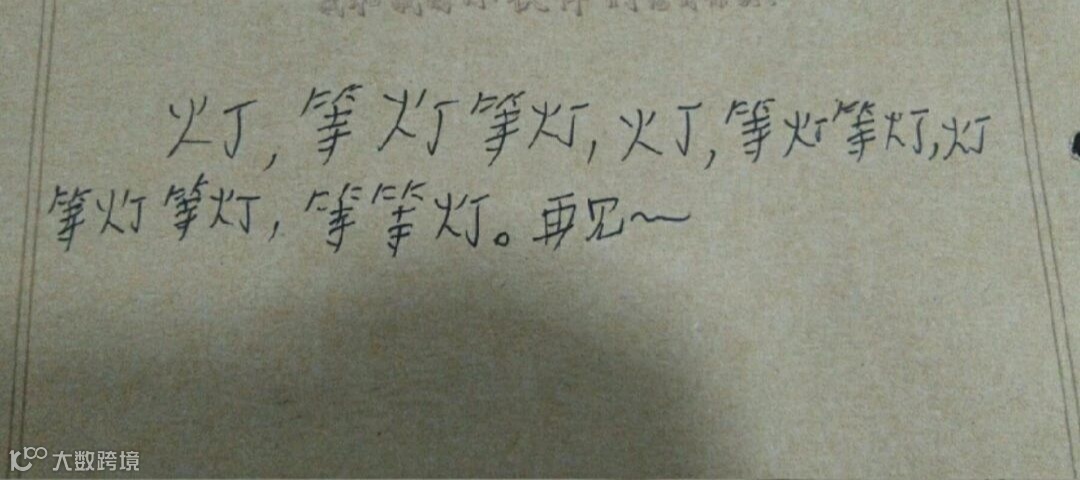 灯，等灯等灯，灯，等灯等灯，灯
等灯等灯，等等灯。再见～
大数跨境